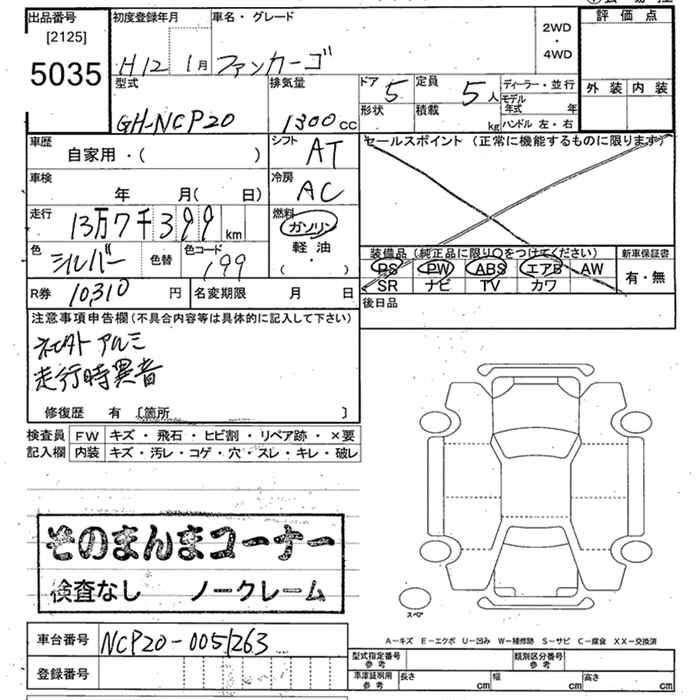 出品番号
[2125]
5035
初度登録年月
H12 1月
車名・グレード
ファンカーゴ
2WD
・
4WD
評価点
外装 内装
型式
GH-NCP20
排気量
1300cc
ドア 5
定員 5人
形状
積載 kg
ディーラー・並行
モデル年式 年
ハンドル 左・右
車歴
自家用・( )
シフト
AT
セールスポイント(正常に機能するものに限ります)
車検
年 月( 日)
冷房
AC
走行
13万7千399km
燃料
ガソリン
軽油
( ・ )
色
シルバー
色替
色コード
199
装備品(純正品に限り〇をつけてください)
PS PW ABS エアB AW
SR ナビ TV カワ
新車保証書
有・無
R券 10310円
名変期限 月 日
後日品
注意事項申告欄(不具合内容等は具体的に記入して下さい)
アルミ
走行時異音
修復歴 有 〔箇所 〕
検査員
記入欄
FW キズ・飛石・ヒビ割・リペア跡・×要
内装 キズ・汚レ・コゲ・穴・スレ・キレ・破レ
そのまんまコーナー
検査なし ノークレーム
スペア
A−キズ E−エクボ U−凹み W−補修跡 S−サビ C−腐食 XX−交換済
車台番号 NCP20-0051263
登録番号
型式指定番号
参考
類別区分番号
参考
車庫証明用
参考
長さ cm
幅 cm
高さ cm